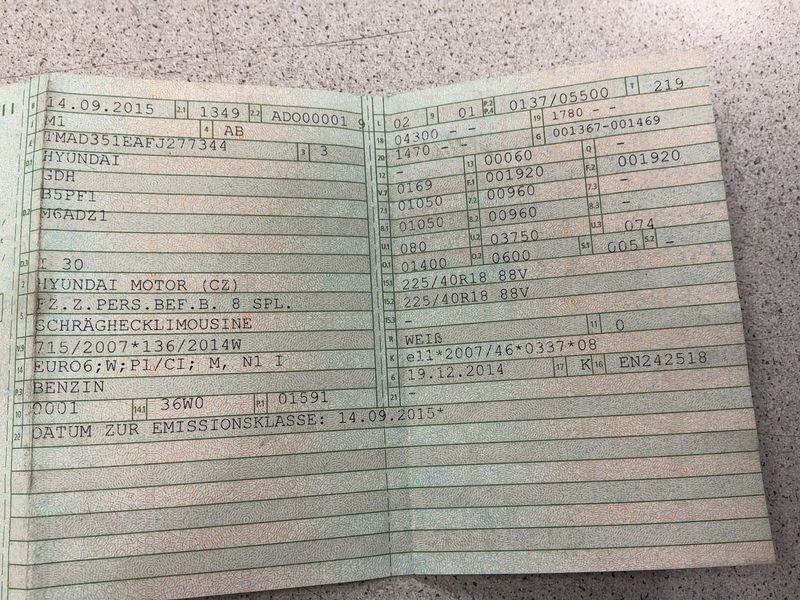 B 14.09.2015 2.1 1349 2.2 ADO00001 9
J M1 4 AB
E TMAD351EAFJ277344 3 3
D.1 HYUNDAI
GDH
B5PF1
D.2 M6ADZ1
D.3 I 30
2 HYUNDAI MOTOR (CZ)
FZ.Z.PERS.BEF.B. 8 SPL.
5 SCHRÄGHECKLIMOUSINE
V.9 715/2007*136/2014W
14 EURO6;W;PI/CI; M, N1 I
P.3 BENZIN
10 0001 14.1 36W0 P.1 01591
22 DATUM ZUR EMISSIONSKLASSE: 14.09.2015*
L 02 9 01 P.2 P.4 0137/05500 T 219
18 04300 - - 19 1780 - -
20 1470 - - G 001367-001469
12 - 13 00060 Q -
V.7 0169 F.1 001920 F.2 001920
7.1 01050 7.2 00960 7.3 -
8.1 01050 8.2 00960 8.3 -
U.1 080 U.2 03750 U.3 074
O.1 01400 O.2 0600 S.1 005 S.2 -
15.1 225/40R18 88V
15.2 225/40R18 88V
15.3 -
R WEIß 11 0
K e11*2007/46*0337*08
6 19.12.2014 17 K 16 EN242518
21 -